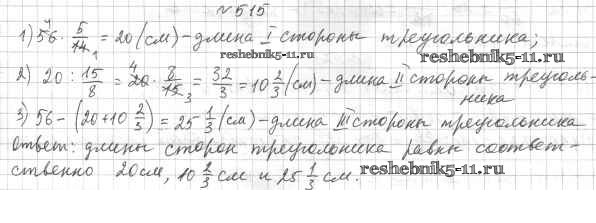 №515
1) 56 · 5/14 = 20 (см) – длина I стороны треугольника;
reshebnik5-11.ru
reshebnik5-11.ru
2) 20 : 15/8 = 20 · 8/15 = 32/3 = 10 2/3 (см) – длина II стороны треуголь-
ника
3) 56 – (20 + 10 2/3) = 25 1/3 (см) – длина III стороны треугольника
Ответ: длины сторон треугольника равны соответ-
ственно 20см, 10 2/3 см и 25 1/3 см.
reshebnik5-11.ru